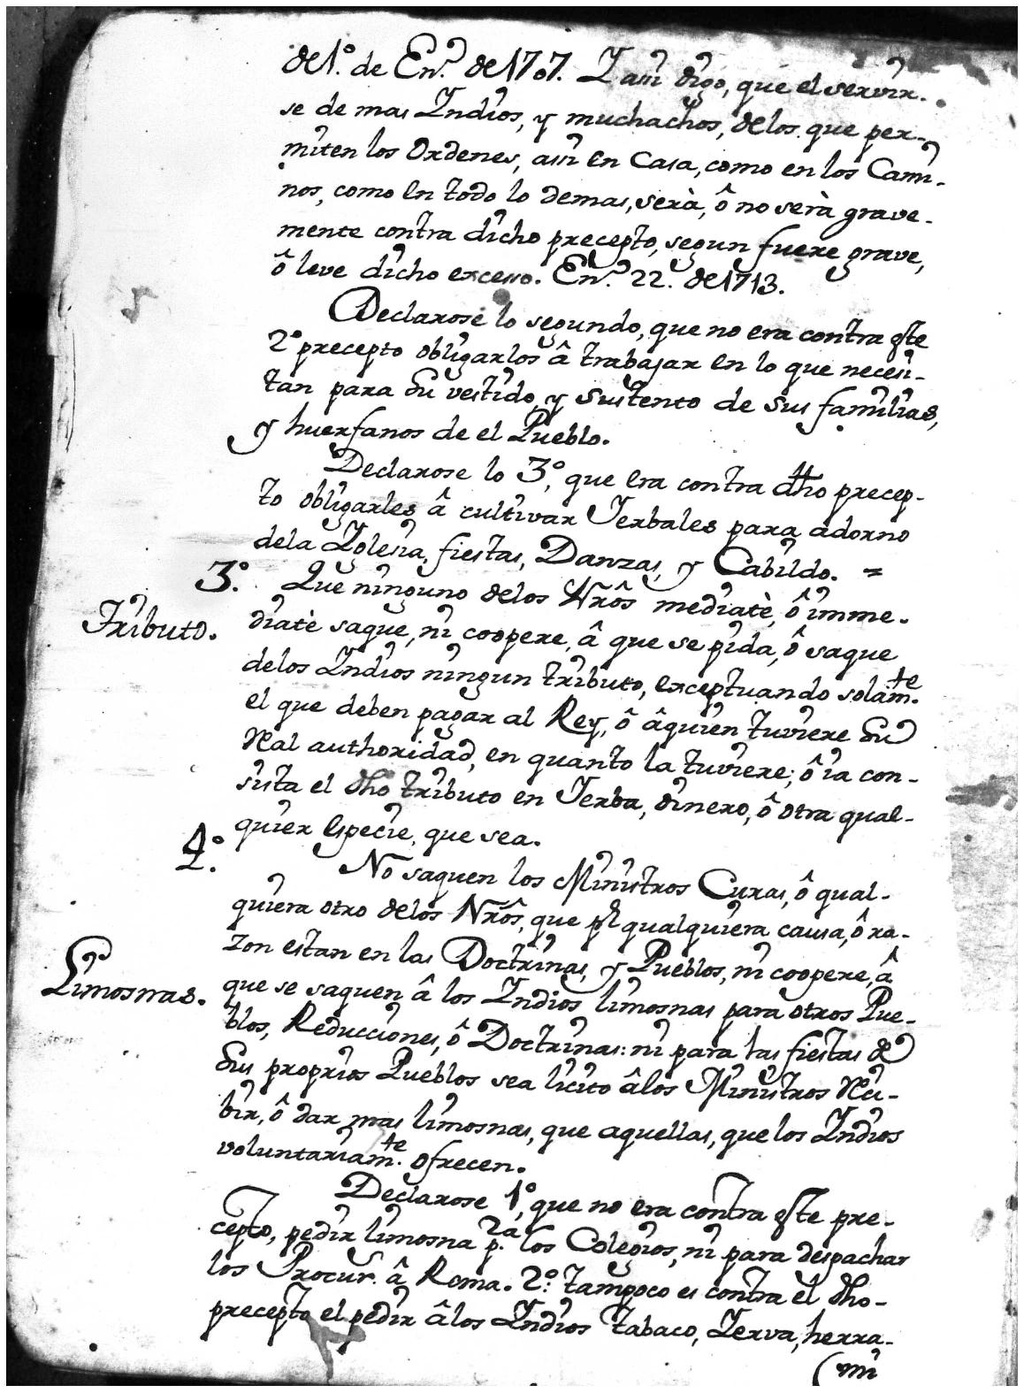 de 1.º de En.º de 1707. I assi digo, que el servir-
se de mas Indios, y muchachos, delos que per-
miten los Ordenes, assi en Casa, como en los Cami-
nos, como en todo lo demas, serà, ô no serà grave-
mente contra dicho precepto, segun fuere grave,
ô leve dicho excesso. En.º 22. de 1713.
Declarose lo segundo, que no era contra este
2º precepto obligarlos â trabajar en lo que necessi-
tan para su vestido, y sustento de sus familias,
y huerfanos de el Pueblo.
Declarose lo 3º, que era contra dho precep-
to obligarles â cultivar Jerbales para adorno
dela Iglesia, fiestas, Danzas, y Cabildo. =
3º. Que ninguno delos Nrôs mediatè, ô imme-
Tributo. diatè saque, ni coopere, â que se pida, ô saque
delos Indios ningun tributo, exceptuando solam.te
el que deben pagar al Rey, ô âquien tuviere su
Real authoridad, en quanto la tuviere; ô ia con-
sista el dho tributo en Jerba, dinero, ô otra qual-
quier especie, que sea.
4º. No saquen los Ministros Curas, ô qual-
quiera otro delos Nrôs, que pr qualquiera causa, ô ra-
zon estan en las Doctrinas, y Pueblos, ni coopere, â
Limosnas. que se saquen â los Indios limosnas para otros Pue-
blos, Reducciones, ô Doctrinas: ni para las fiestas de
sus proprios Pueblos sea licito âlos Ministros Reci-
bir, ô dar mas limosnas, que aquellas, que los Indios
voluntariam.te ofrecen.
Declarose 1º, que no era contra este pre-
cepto, pedir limosna p.ra los Colegios, ni para despachar
los Procur.s â Roma. 2º: tampoco es contra el dho-
precepto el pedir âlos Indios Tabaco, Jerva, herra-
(mi